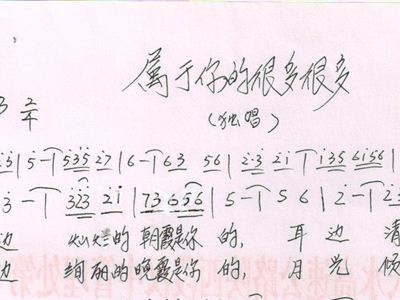 属于你的很多很多
(独唱)
3 2/4
2·3 | 5 - | 535 27 | 6 - | 63 56 | 2·3 2i | i35 6i56 |
3 - | 323 2i | 73 656 | 5 - | 5 6 | 2 - | 2·3
边 灿烂的 朝霞是你 的, 耳 边 清
边 绚丽的 晚霞是你 的, 月 光 倾